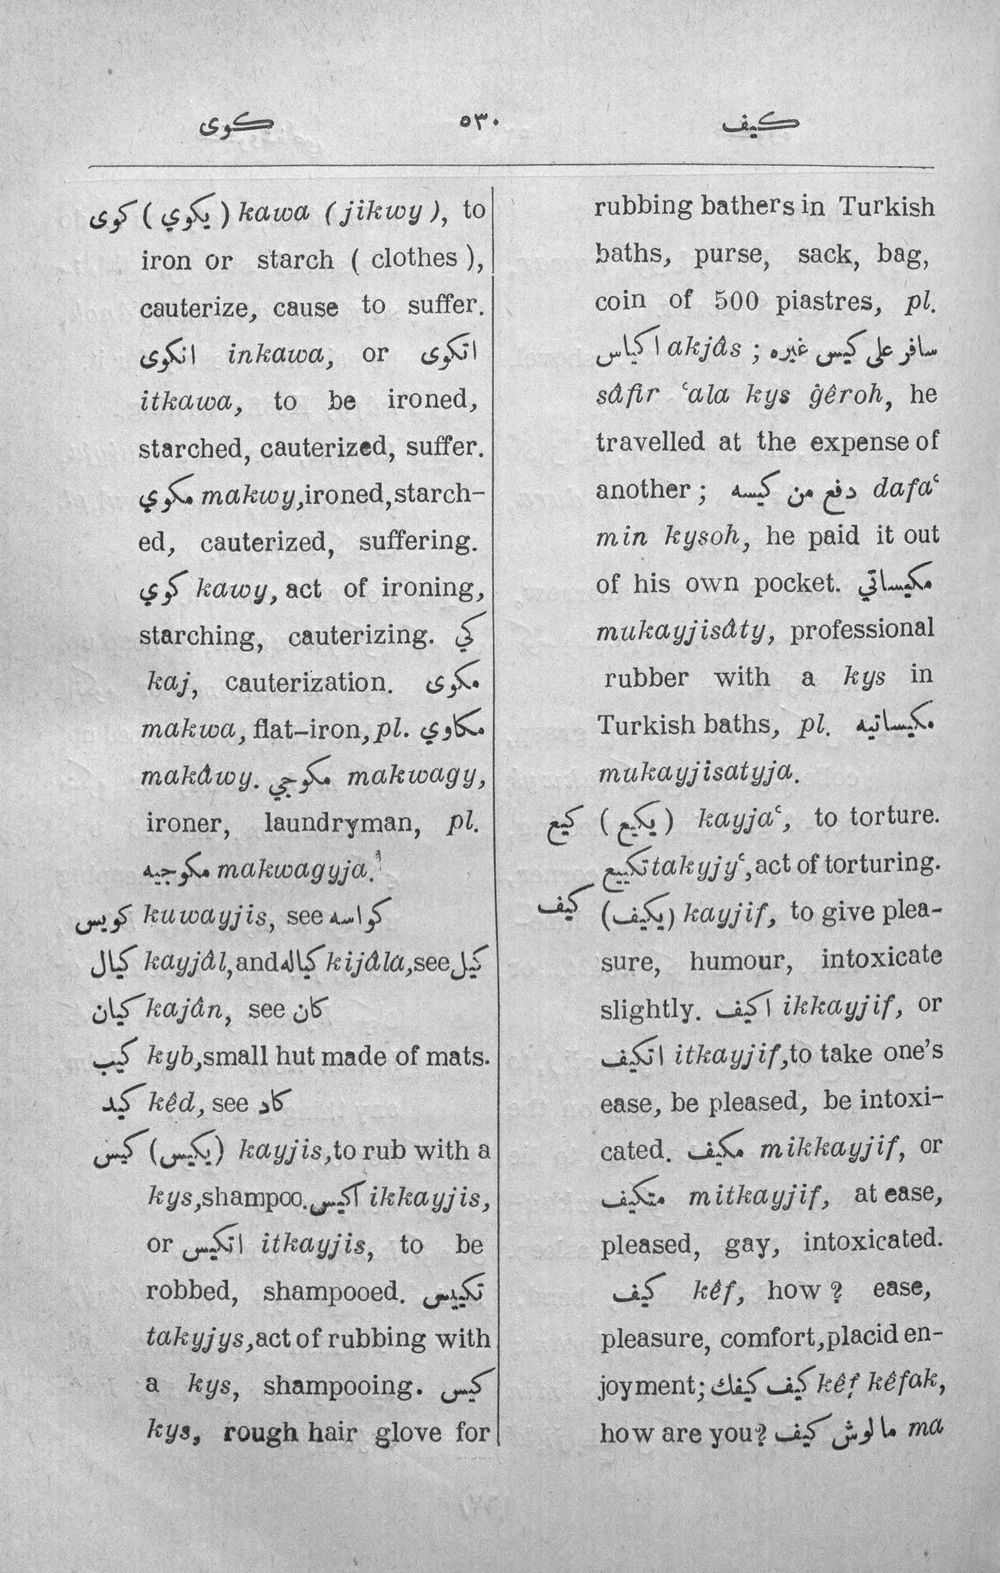 كوى ٥٣٠ كيف
كوى (يكوي) kawa (jikwy), to
iron or starch (clothes),
cauterize, cause to suffer.
انكوى inkawa, or اتكوى
itkawa, to be ironed,
starched, cauterized, suffer.
مكوي makwy, ironed, starch-
ed, cauterized, suffering.
كوي kawy, act of ironing,
starching, cauterizing. كي
kaj, cauterization. مكوى
makwa, flat-iron, pl. مكاوي
makâwy. مكوجي makwagy,
ironer, laundryman, pl.
مكوجيه makwagyja.
كويس kuwayjis, see كواسه
كيال kayjâl, and كياله kijâla, see كيل
كيان kajân, see كان
كيب kyb, small hut made of mats.
كيد kêd, see كاد
كيس (يكيس) kayjis, to rub with a
kys, shampoo. اكيس ikkayjis,
or اتكيس itkayjis, to be
robbed, shampooed. تكييس
takyjys, act of rubbing with
a kys, shampooing. كيس
kys, rough hair glove for
rubbing bathers in Turkish
baths, purse, sack, bag,
coin of 500 piastres, pl.
اكياس akjâs ; سافر على كيس غيره
sâfir ʿala kys ġêroh, he
travelled at the expense of
another ; دفع من كيسه dafaʿ
min kysoh, he paid it out
of his own pocket. مكيساتي
mukayjisâty, professional
rubber with a kys in
Turkish baths, pl. مكيساتيه
mukayjisatyja.
كيع (يكيع) kayjaʿ, to torture.
تكييع takyjyʿ, act of torturing.
كيف (يكيف) kayjif, to give plea-
sure, humour, intoxicate
slightly. اكيف ikkayjif, or
اتكيف itkayjif, to take one's
ease, be pleased, be intoxi-
cated. مكيف mikkayjif, or
متكيف mitkayjif, at ease,
pleased, gay, intoxicated.
كيف kêf, how ? ease,
pleasure, comfort, placid en-
joyment ; كيف كيفك kêf kêfak,
how are you ? مالوش كيف ma